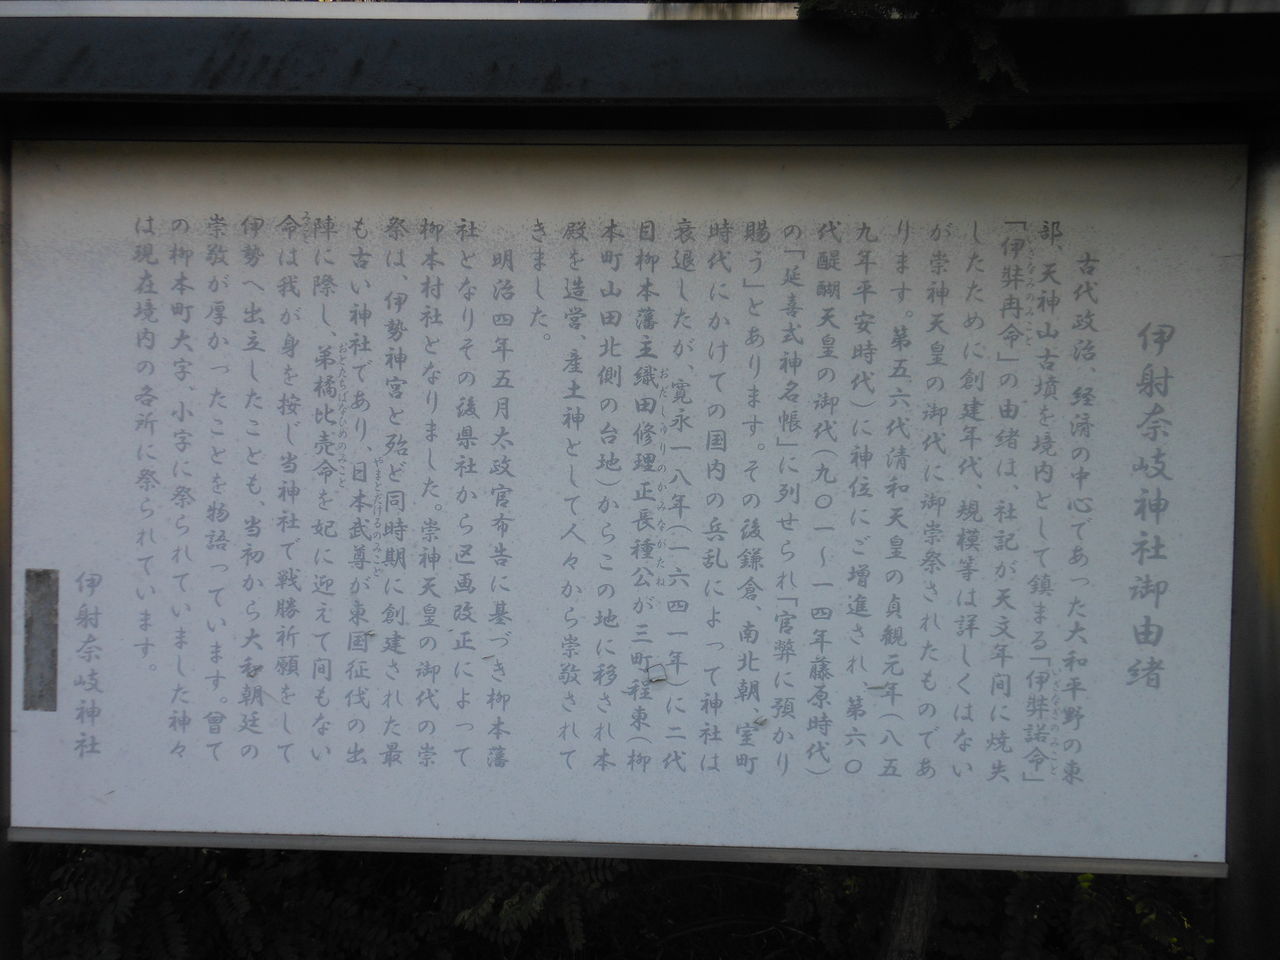 伊射奈岐神社御由緒
古代政治、経済の中心であった大和平野の東
部、天神山古墳を境内として鎮まる「伊弉諾命」
「伊弉冉命」の由緒は、社記が天文年間に焼失
したために創建年代、規模等は詳しくはない
が崇神天皇の御代に御崇祭されたものであ
ります。第五六代清和天皇の貞観元年(八五
九年平安時代)に神位にご増進され、第六〇
代醍醐天皇の御代(九〇一〜一四年藤原時代)
の「延喜式神名帳」に列せられ「官弊に預かり
賜う」とあります。その後鎌倉、南北朝、室町
時代にかけての国内の兵乱によって神社は
衰退したが、寛永一八年(一六四一年)に二代
目柳本藩主織田修理正長種公が三町程東(柳
本町山田北側の台地)からこの地に移され本
殿を造営、産土神として人々から崇敬されて
きました。
明治四年五月太政官布告に基づき柳本藩
社となりその後県社から区画改正によって
柳本村社となりました。崇神天皇の御代の崇
祭は、伊勢神宮と殆ど同時期に創建された最
も古い神社であり、日本武尊が東国征伐の出
陣に際し、弟橘比売命を妃に迎えて間もない
命は我が身を按じ当神社で戦勝祈願をして
伊勢へ出立したことも、当初から大和朝廷の
崇敬が厚かったことを物語っています。曾て
の柳本町大字、小字に祭られていました神々
は現在境内の各所に祭られています。
伊射奈岐神社